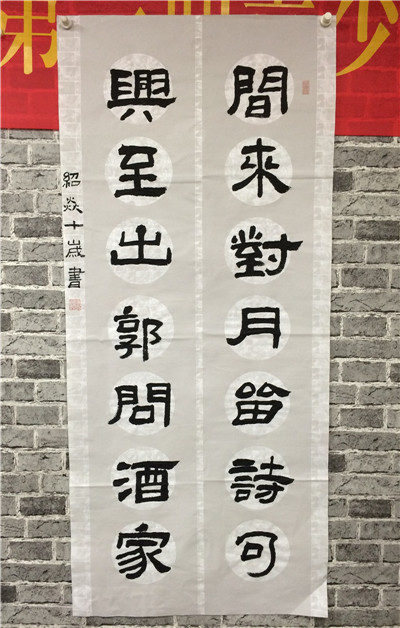 間來對月留詩句
興至出郭問酒家
紹焱十歲書